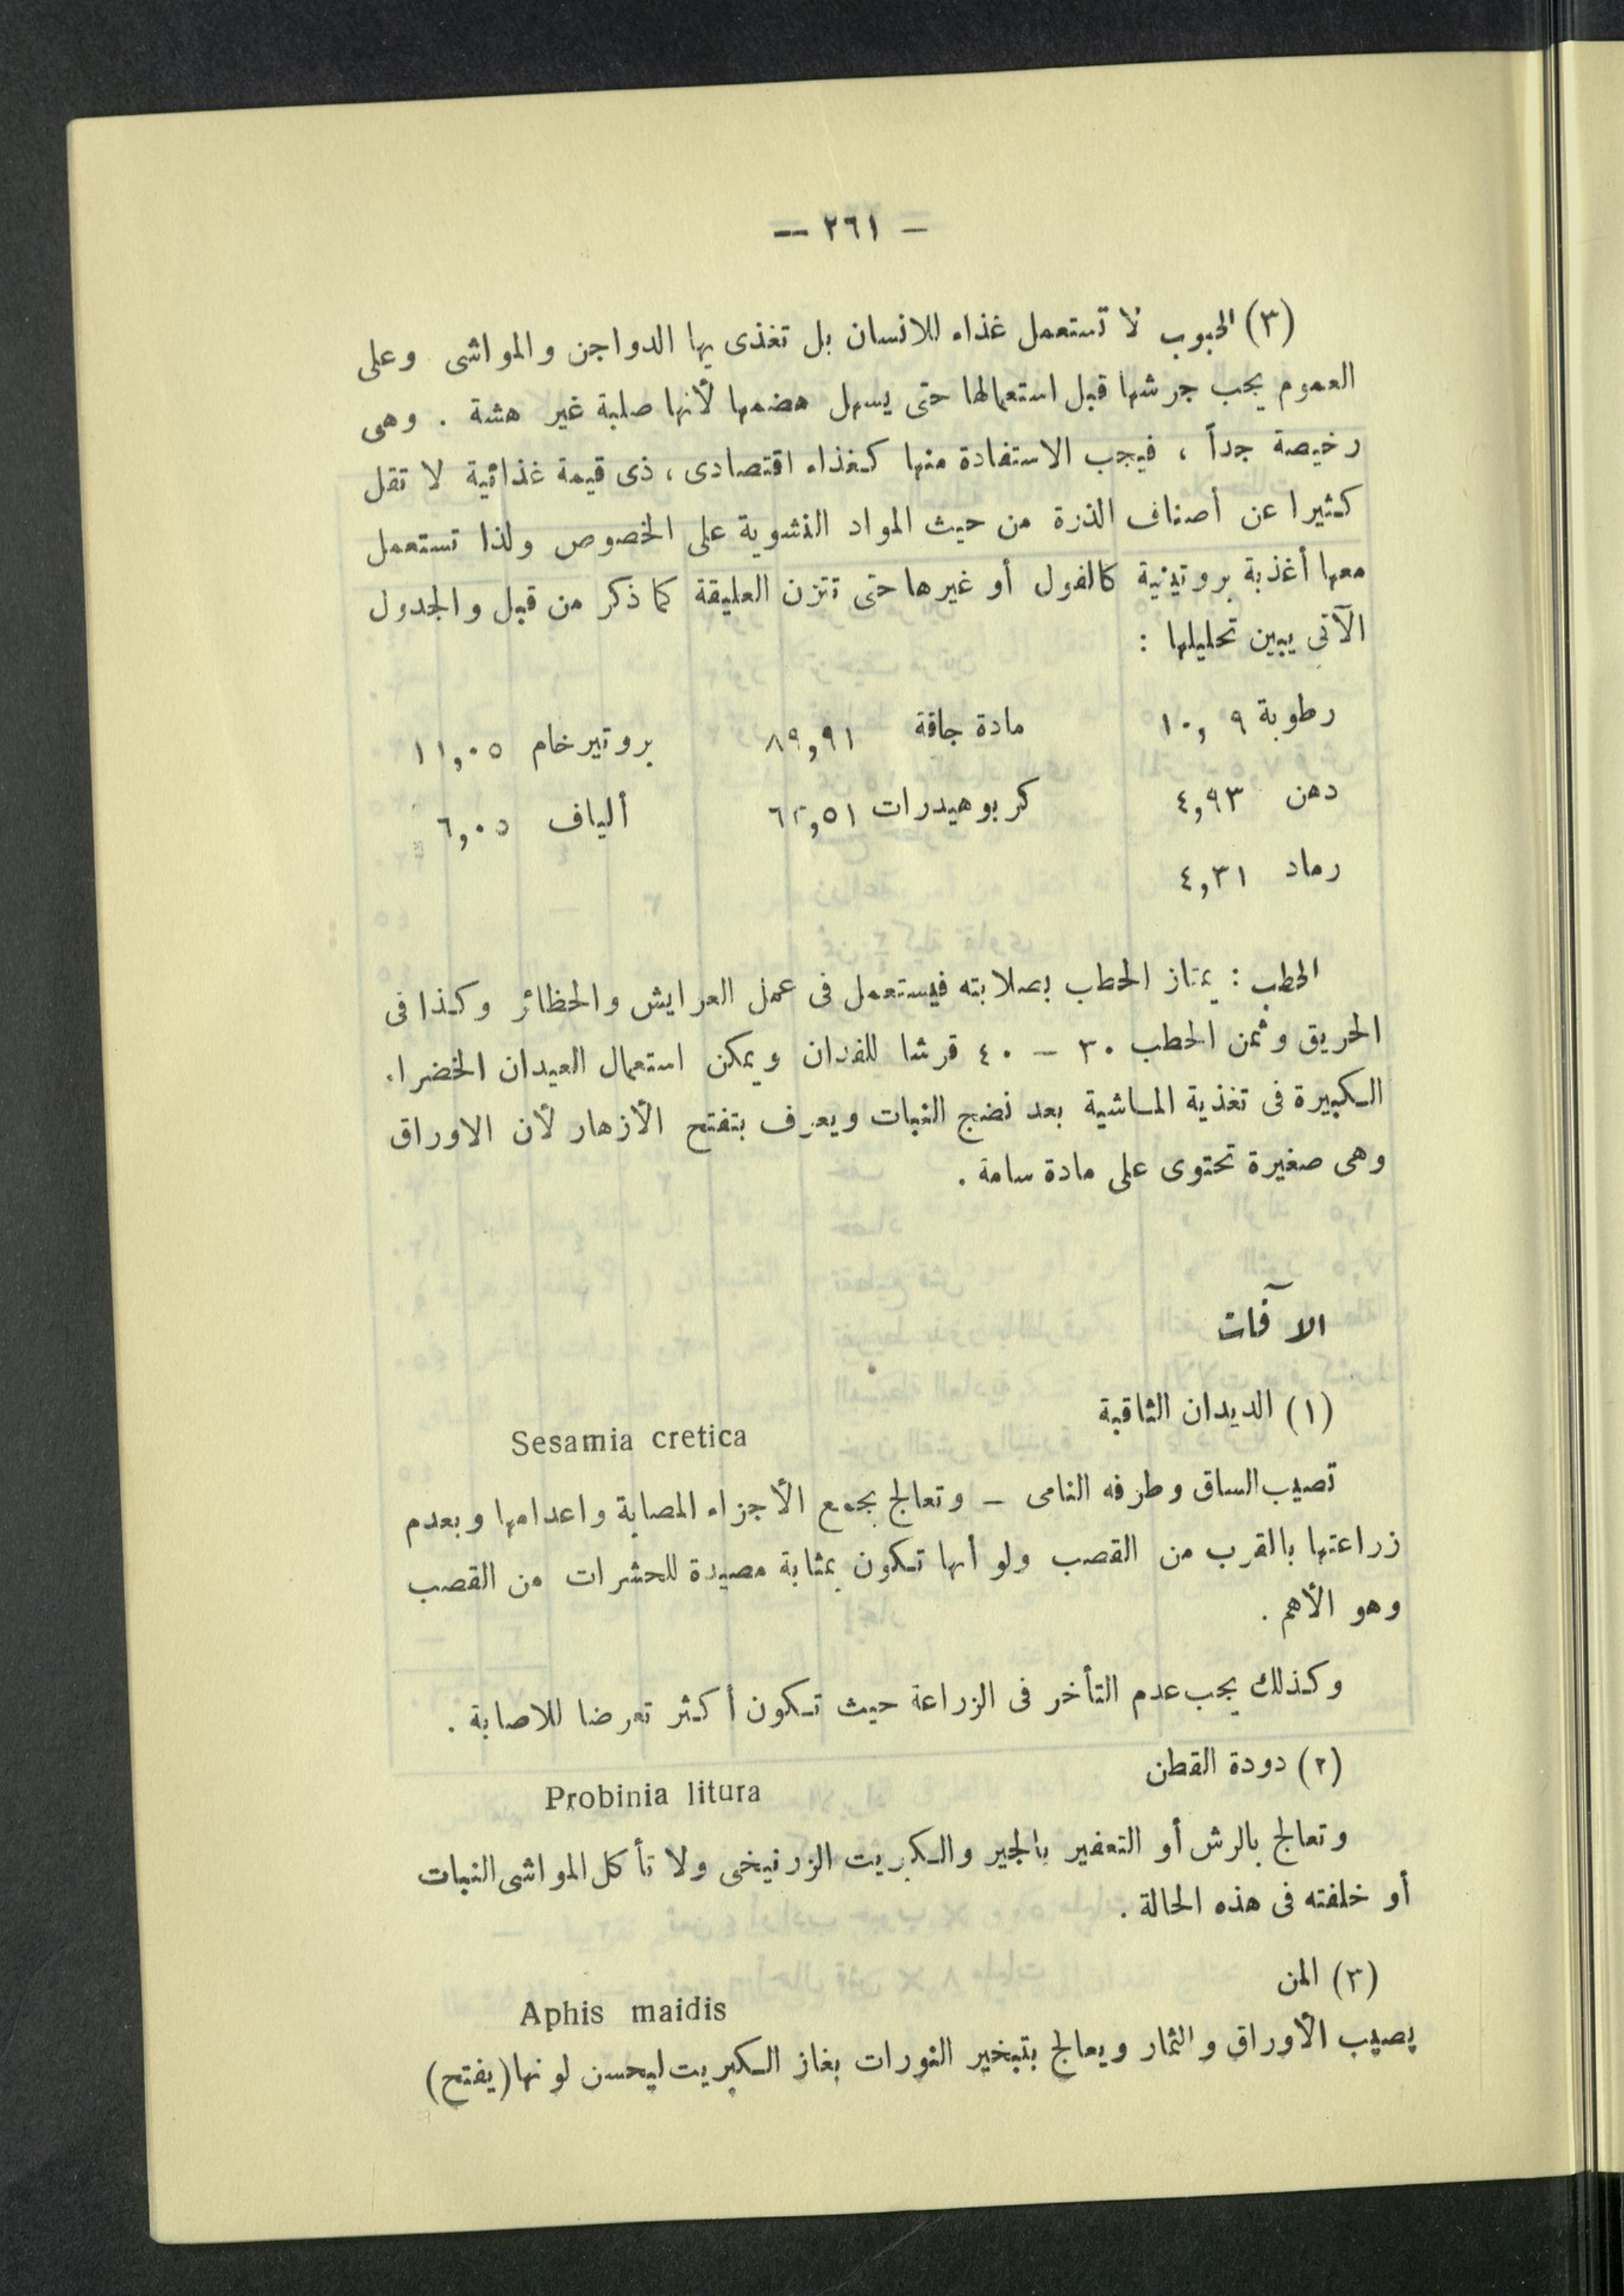 — ٢٦١ —
(٣) الحبوب لا تستعمل غذاء للانسان بل تغذى بها الدواجن والمواشى وعلى
العموم يجب جرشها قبل استعمالها حتى يسهل هضمها لأنها صلبة غير هشة . وهى
رخيصة جداً ، فيجب الاستفادة منها كغذاء اقتصادى ، ذى قيمة غذائية لا تقل
كثيرا عن أصناف الذرة من حيث المواد النشوية على الخصوص ولذا تستعمل
معها أغذية بروتينية كالفول أو غيرها حتى تتزن العليقة كما ذكر من قبل والجدول
الآتى يبين تحليلها :
رطوبة ١٠,٠٩ مادة جافة ٨٩,٩١ بروتير خام ١١,٠٥
دهن ٤,٩٣ كربوهيدرات ألياف ٦,٠٥
رماد ٤,٣١
الحطب : يمتاز الحطب بصلابته فيستعمل فى عمل العرايش والحظائر وكذا فى
الحريق وثمن الحطب ٣٠ – ٤٠ قرشا للفدان ويمكن استعمال العيدان الخضراء
الكبيرة فى تغذية الماشية بعد نضج النبات ويعرف بتفتح الأزهار لأن الاوراق
وهى صغيرة تحتوى على مادة سامة .
الآفات
(١) الديدان الثاقبة
Sesamia cretica
تصيب الساق وطرفه النامى – وتعالج بجمع الأجزاء المصابة واعدامها وبعدم
زراعتها بالقرب من القصب ولو أنها تكون بمثابة مصيدة للحشرات من القصب
وهو الأهم .
وكذلك يجب عدم التأخر فى الزراعة حيث تكون أكثر تعرضا للاصابة .
(٢) دودة القطن
Probinia litura
وتعالج بالرش أو التعفير بالجير والكبريت الزرنيخى ولا تأكل المواشى النبات
أو خلفته فى هذه الحالة .
(٣) المن
Aphis maidis
يصيب الأوراق والثمار ويعالج بتبخير النورات بغاز الكبريت ليحسن لونها (يفتح)